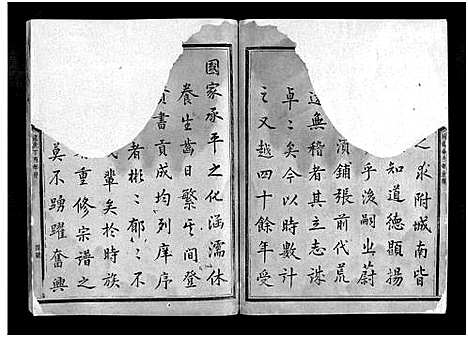 之求附城南皆
知道德顯揚
乎後嗣也蔚
須鋪張前代荒
遠無稽者其立志誠
卓〻矣今以時數計
之又越四十餘年受
國家承平之化涵濡休
養生齒日繁其間登
書貢成均列庠序
者彬〻郁〻不
輩矣於時族
重修宗譜之
莫不踴躍奮興